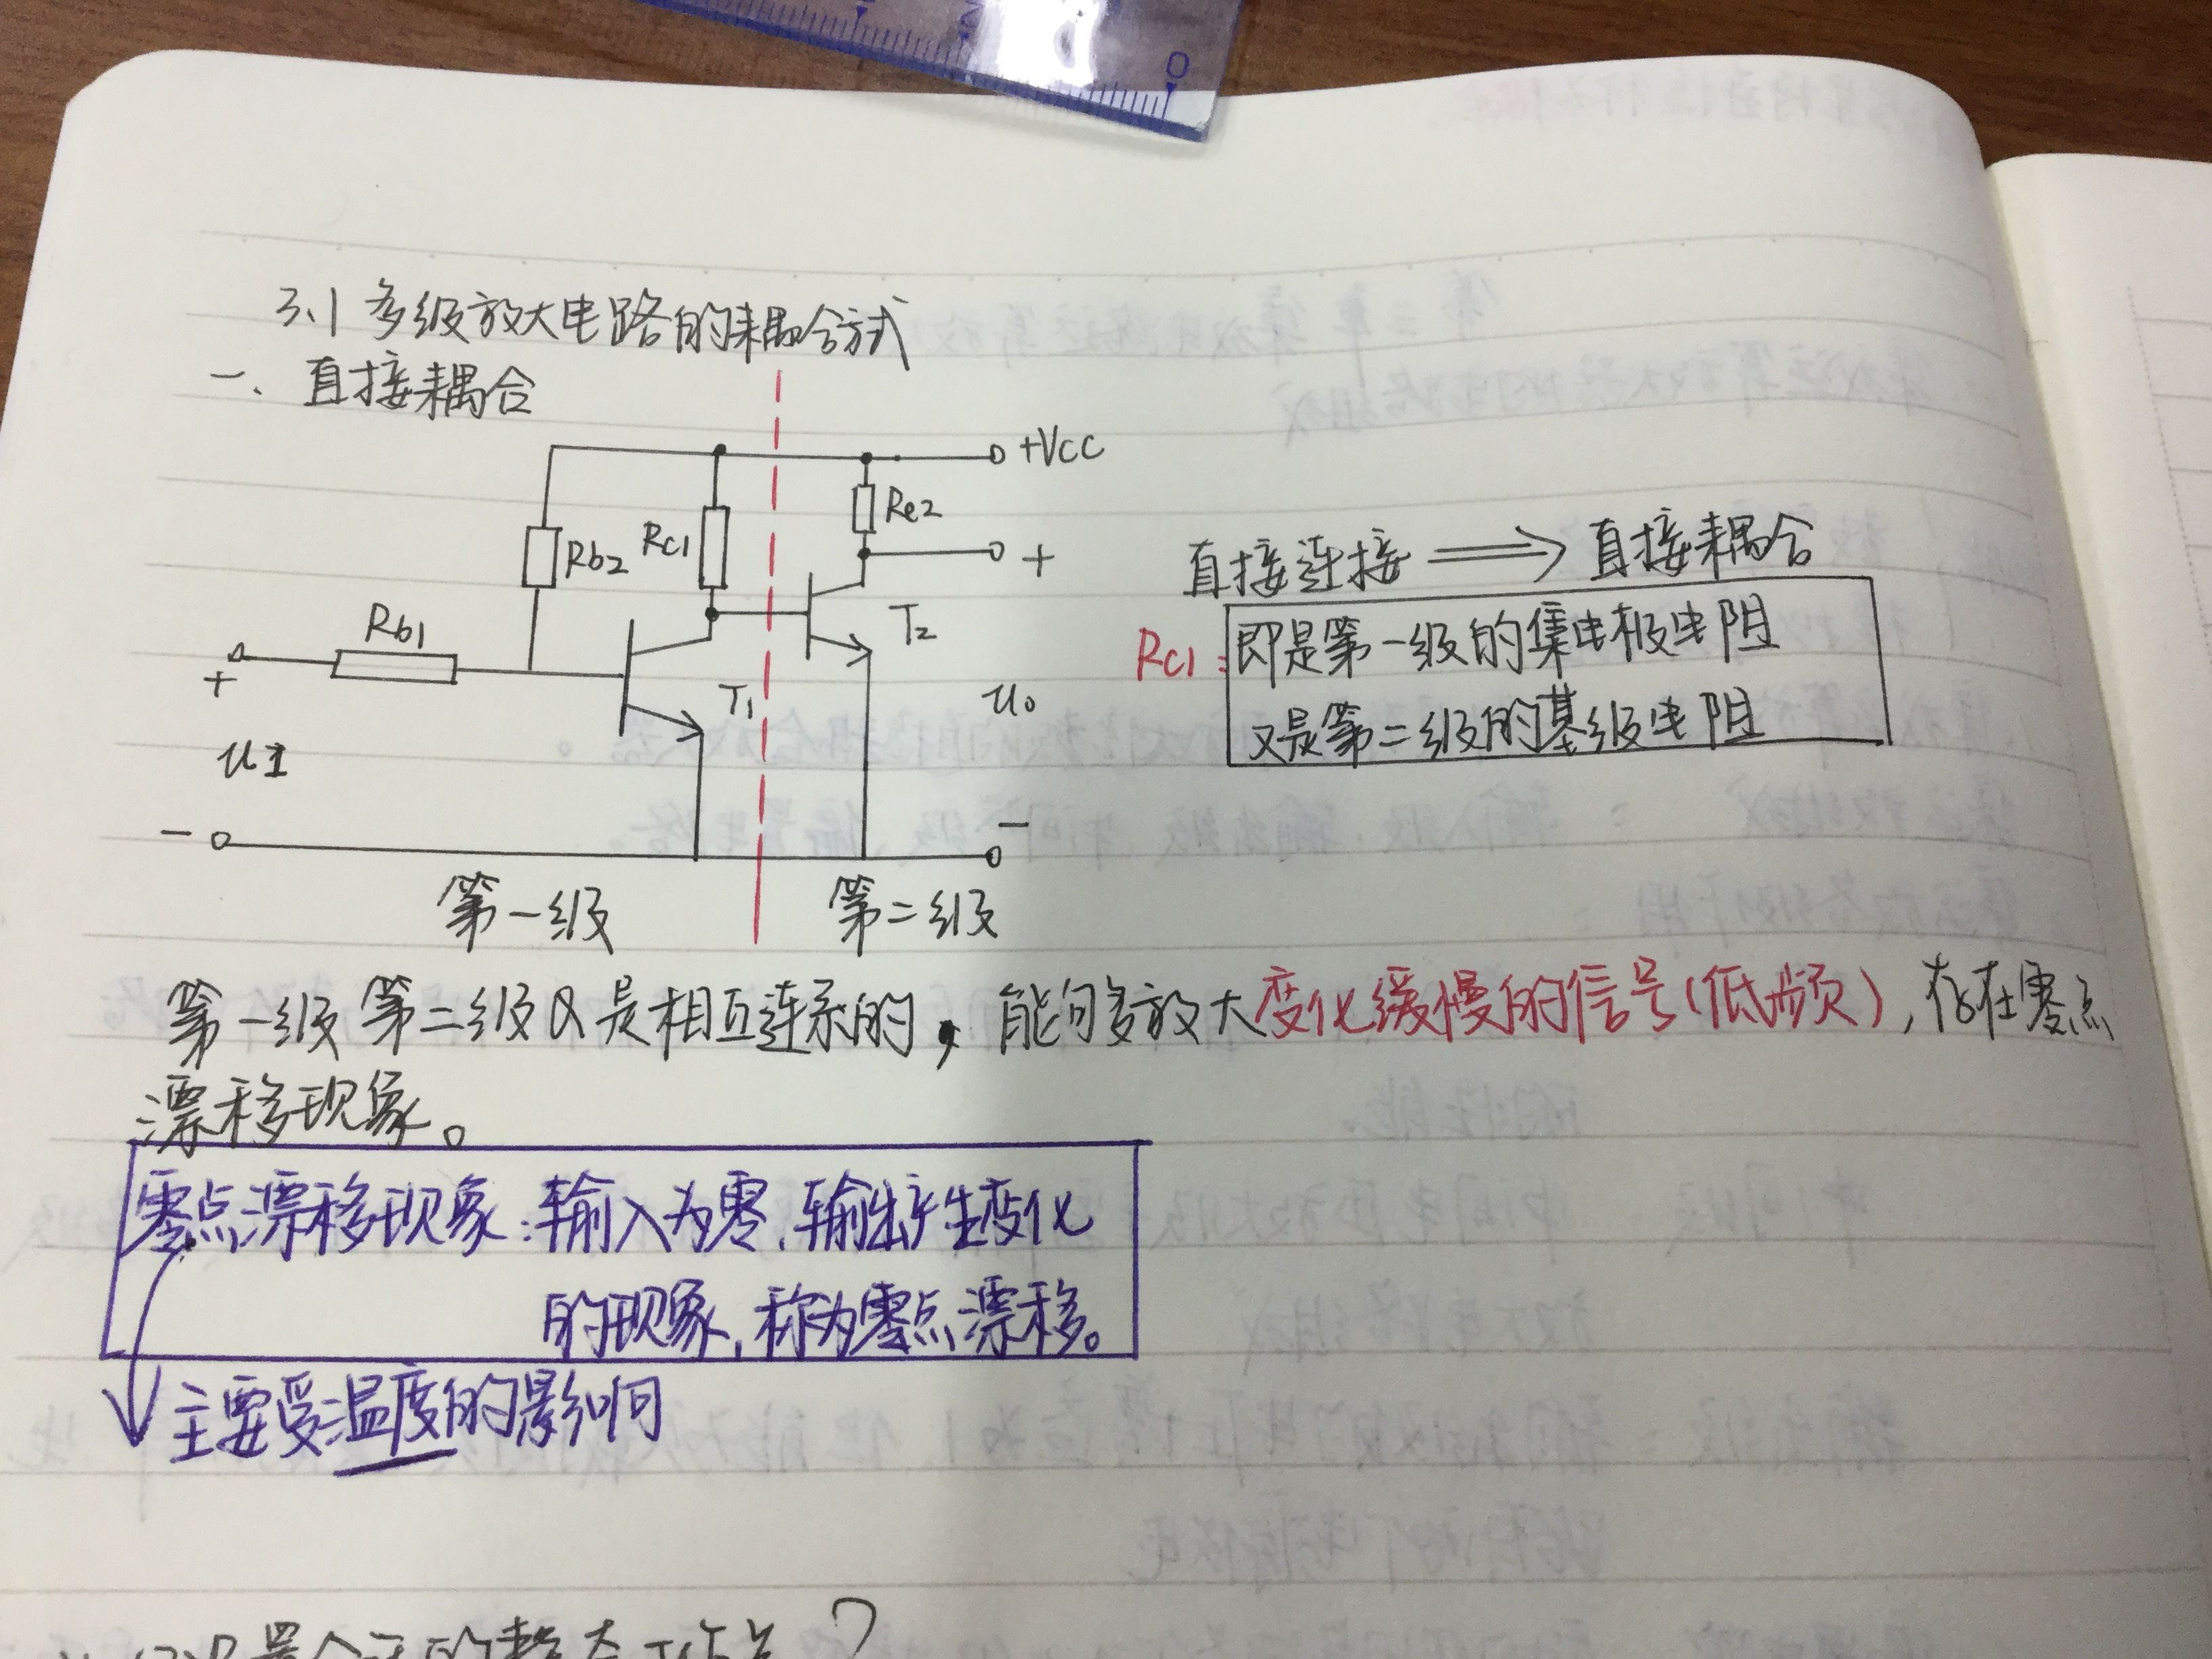 0
3.1 多级放大电路的耦合方式
一、直接耦合
+Vcc
Re2
Rb2
Rc1
+
Rb1
T2
+
T1
uo
uI
-
-
第一级
第二级
直接连接 ⟹ 直接耦合
Rc1: 即是第一级的集电极电阻
又是第二级的基级电阻
第一级第二级Q是相互连系的, 能够放大变化缓慢的信号(低频), 存在零点
漂移现象。
零点漂移现象:输入为零,输出产生变化
的现象,称为零点漂移。
主要受温度的影响